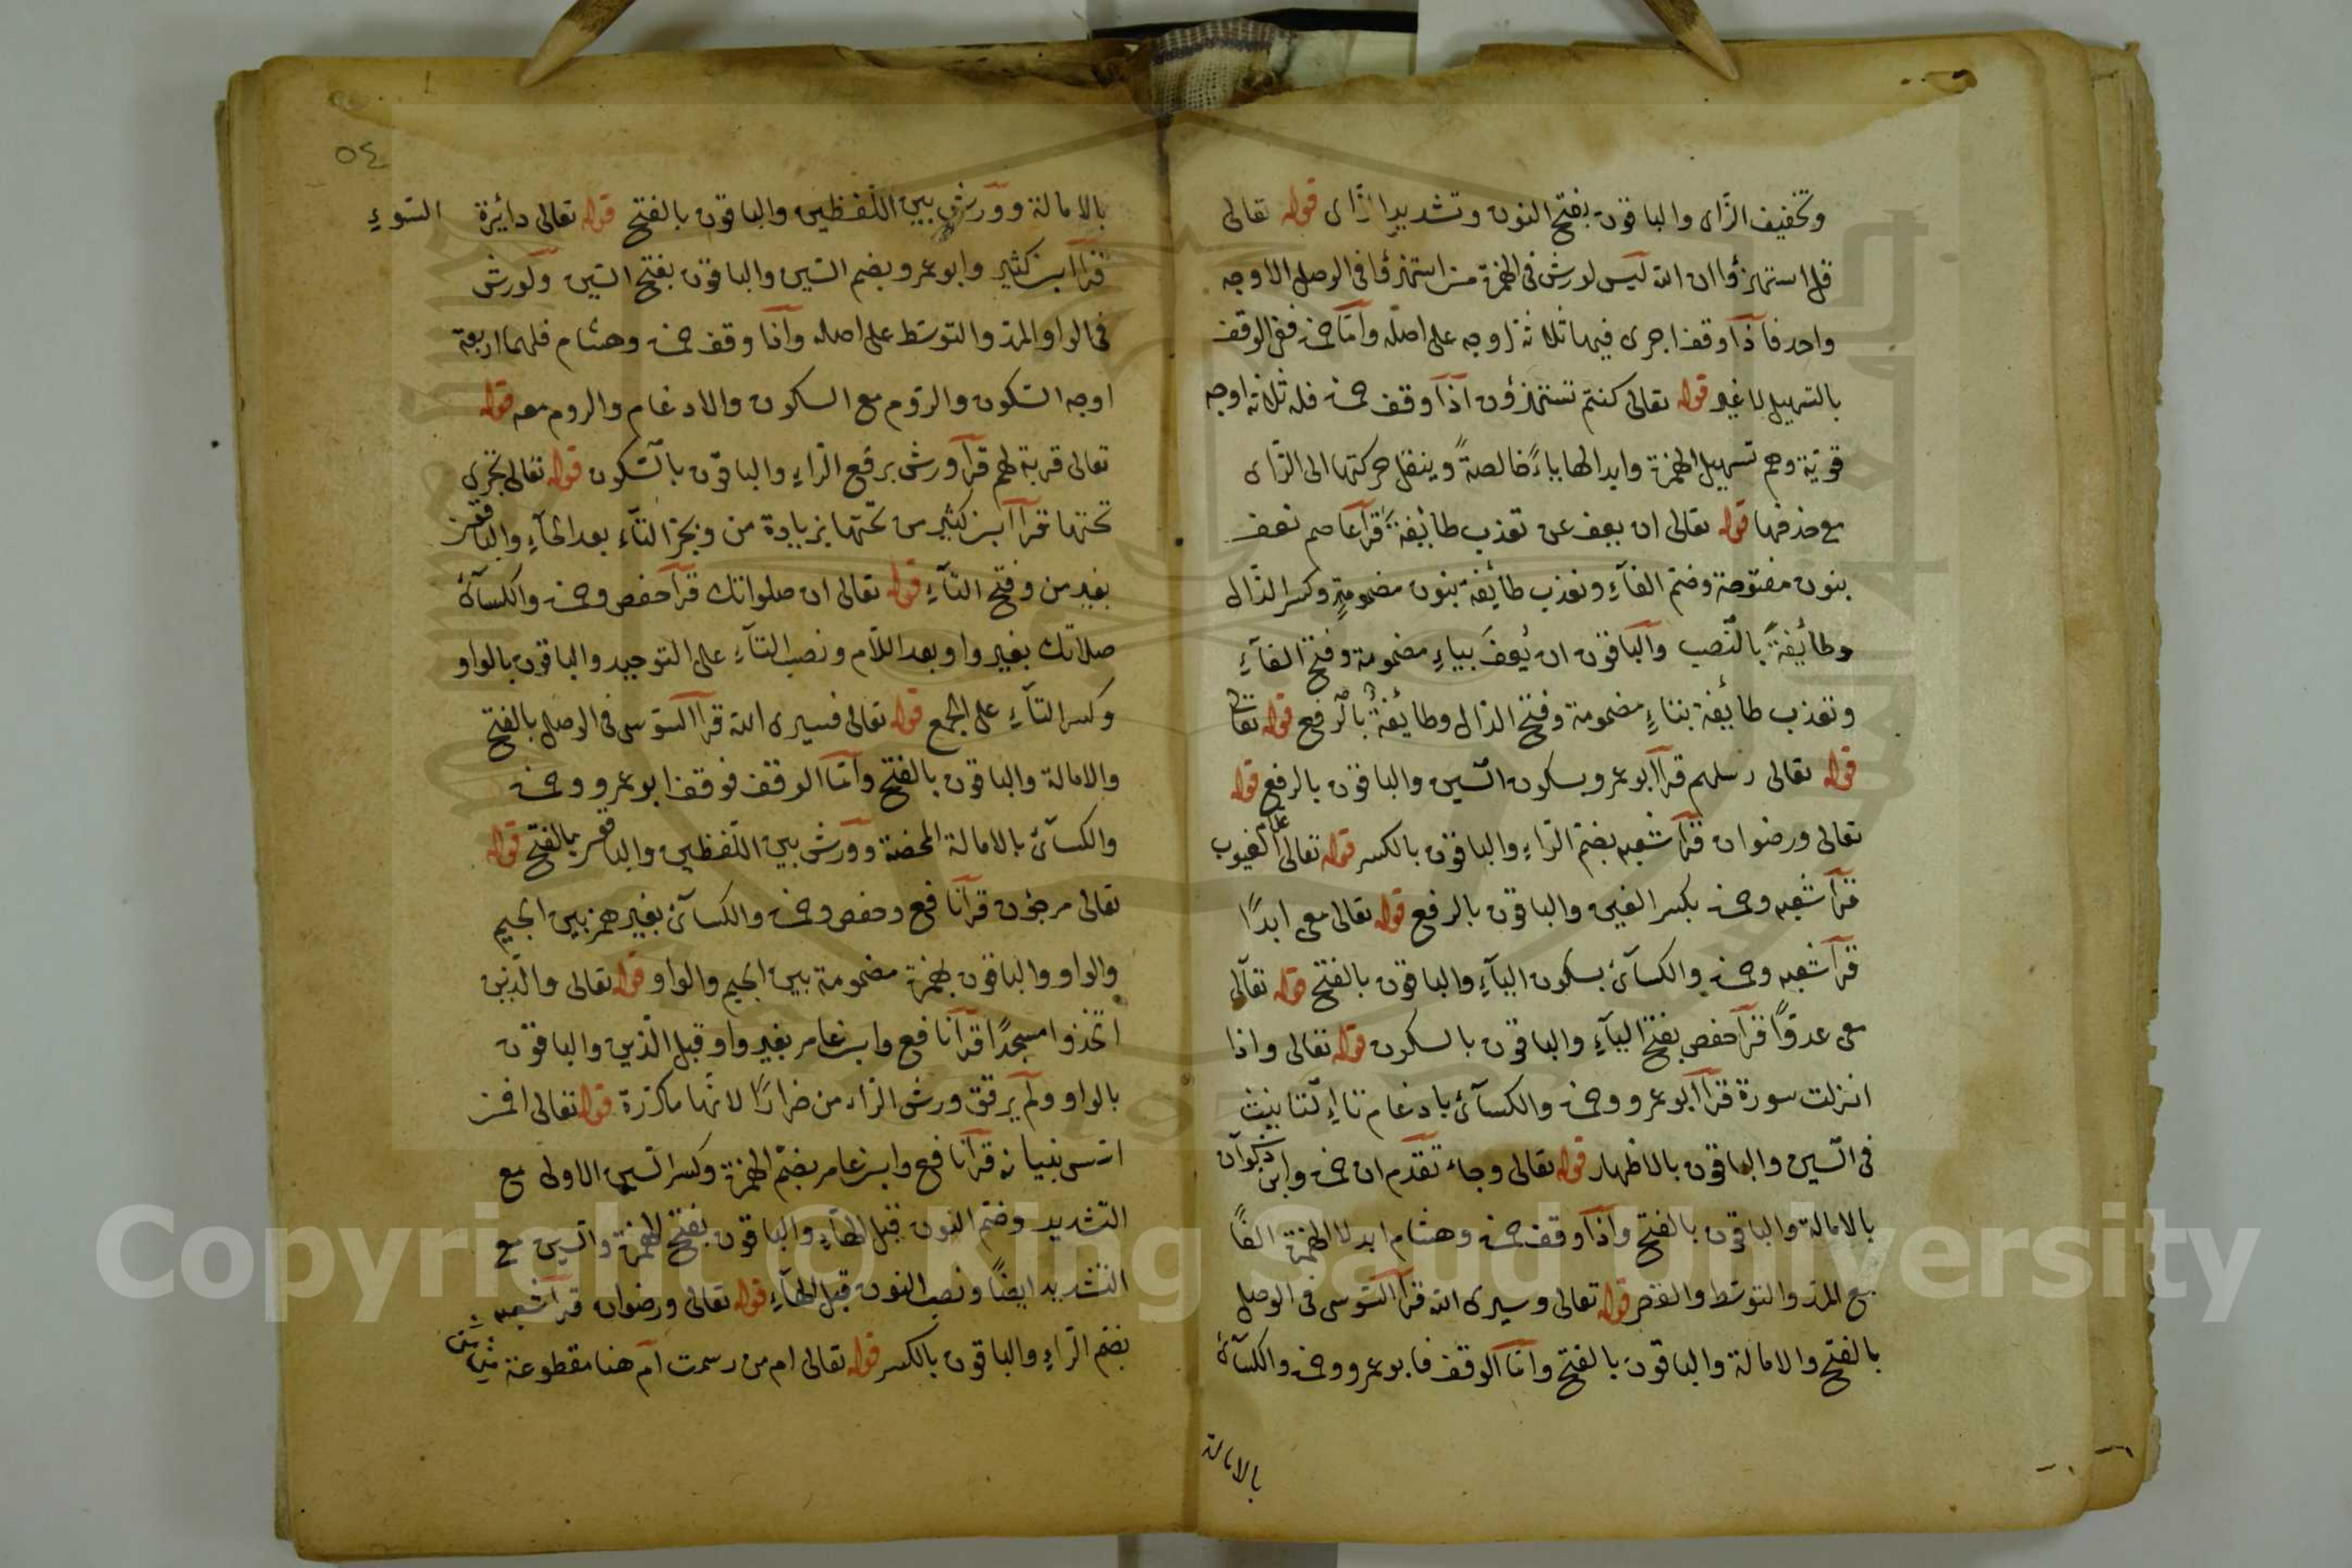 وتخفيف الزاى والباقون بفتح النون وتشديد الزاى قوله تعالى
قل استهزؤا ان الله ليس لورش فى الهمزة من استهزؤا فى الوصل الا وجه
واحد فاذا وقف اجرى فيها ثلاثة اوجه على اصله واما حمزة ففى الوقف
بالتسهيل لا غير قوله تعالى كنتم تستهزؤن اذا وقف حمزة فله ثلاثة اوجه
قوية وهم تسهيل الهمزة وابدالها ياءً خالصةً وينقل حركتها الى الزاى
مع حذفها قوله تعالى ان يعف عن تعذب طائفة قرأ عاصم نعف
بنون مفتوحة وضم الفاء ونعذب طائفة بنون مضمومة وكسر الذال
وطائفةً بالنصب والباقون ان يُعفَ بياءٍ مضمومة وفتح الفاء
وتعذب طائفة بتاءٍ مضمومة وفتح الذال وطائفةٌ بالرفع قوله تعالى
قوله تعالى رسلهم قرأ ابو عمرو بسكون السين والباقون بالرفع قوله
تعالى ورضوان قرأ شعبه بضم الراء والباقون بالكسر قوله تعالى علام الغيوب
قرأ شعبه وحمزة بكسر الغين والباقون بالرفع قوله تعالى معى ابدًا
قرأ شعبه وحمزة والكسآئ بسكون اليآء والباقون بالفتح قوله تعالى
معى عدوًا قرأ حفص بفتح اليآء والباقون بالسكون قوله تعالى واذا
انزلت سورة قرأ ابو عمرو وحمزة والكسآئ بادغام تاء التانيث
فى السين والباقون بالاظهار قوله تعالى وجاء تقدم ان حمزة وابن ذكوان
بالامالة والباقون بالفتح واذا وقف حمزة وهشام ابدلا الهمزة الفًا
مع المد والتوسط والقصر قوله تعالى وسيرى الله قرأ السوسى فى الوصل
بالفتح والامالة والباقون بالفتح واما الوقف فابو عمرو وحمزة والكسآئ
بالامالة
٥٤
بالامالة وورش بين اللفظين والباقون بالفتح قوله تعالى دائرة السوء
قرأ ابن كثير وابو عمرو بضم السين والباقون بفتح السين ولورش
فى الواو المد والتوسط على اصله واما وقف حمزة وهشام فلهما اربعة
اوجه السكون والروم مع السكون والادغام والروم معه قوله
تعالى قربة لهم قرأ ورش برفع الراء والباقون بالسكون قوله تعالى تجرى
تحتها قرأ ابن كثير من تحتها بزيادة من وبجر التاء بعد الحاء والباقون
بغير من وفتح التآء قوله تعالى ان صلواتك قرأ حفص وحمزة والكسآئ
صلاتك بغير واو بعد اللام ونصب التآء على التوحيد والباقون بالواو
وكسر التآء على الجمع قوله تعالى فسيرى الله قرأ السوسى فى الوصل بالفتح
والامالة والباقون بالفتح واما الوقف فوقف ابو عمرو وحمزة
والكسآئ بالامالة المحضة وورش بين اللفظين والباقون بالفتح قوله
تعالى مرجون قرأ نافع وحفص وحمزة والكسآئ بغير همز بين الجيم
والواو والباقون بهمزة مضمومة بين الجيم والواو قوله تعالى والذين
اتخذوا مسجدًا قرأ نافع وابن عامر بغير واو قبل الذين والباقون
بالواو ولم يرقق ورش الراء من ضرارًا لانها مكررة قوله تعالى افمن
اسس بنيانه قرأ نافع وابن عامر بضم الهمزة وكسر السين الاولى مع
التشديد وضم النون قبل الهآء والباقون بفتح الهمزة والسين مع
التشديد ايضًا ونصب النون قبل الهآء قوله تعالى ورضوان قرأ شعبه
بضم الراء والباقون بالكسر قوله تعالى ام من رسمت ام هنا مقطوعة
Copyright © King Saud University